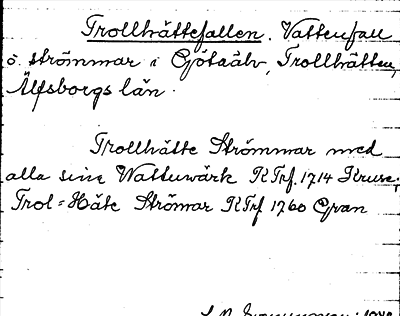 Trollhättefallen. Vattenfall
o. strömmar i Götaälv, Trollhättan,
Älfsborgs län.
Trollhätte Strömmar med
alla sine Wattuwärk RTrf. 1714 Kruse.
Trol=Häte Strömar RTrf 1760 Gran